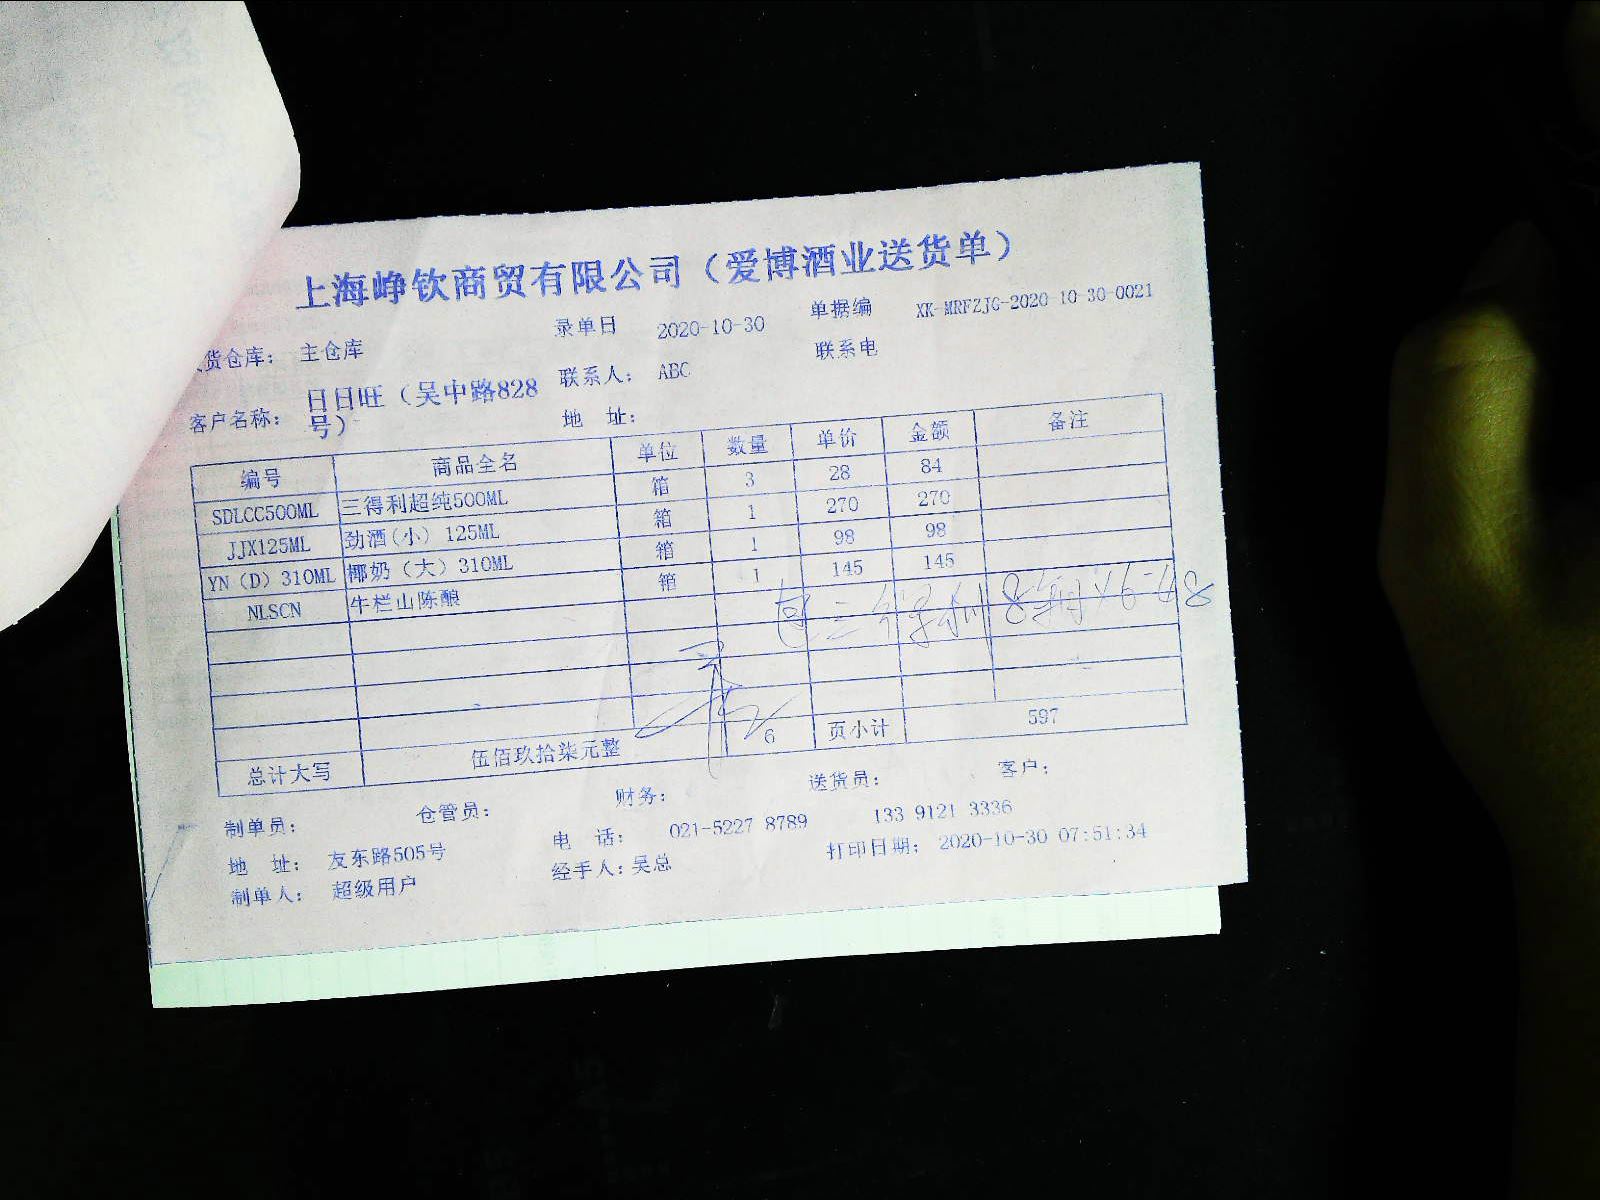 上海峥钦商贸有限公司（爱博酒业送货单）
货仓库： 主仓库 录单日 2020-10-30 单据编 XK-MRFZJC-2020-10-30-0021
客户名称： 日日旺（吴中路828号） 联系人： ABC 联系电
地 址：
编号 商品全名 单位 数量 单价 金额 备注
SDLCC500ML 三得利超纯500ML 箱 3 28 84
JJX125ML 劲酒(小) 125ML 箱 1 270 270
YN（D）310ML 椰奶（大）310ML 箱 1 98 98
NLSCN 牛栏山陈酿 箱 1 145 145
三得利8箱×6=48
总计大写 伍佰玖拾柒元整 6 页小计 597
制单员： 仓管员： 财务： 送货员： 客户：
地 址： 友东路505号 电 话： 021-5227 8789 133 9121 3336
制单人： 超级用户 经手人：吴总 打印日期； 2020-10-30 07:51:34